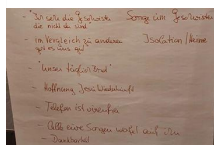 - "Ich sehe die Geschwister
die nicht da sind"
Sorge um Geschwister
- im Vergleich zu anderen
geht es uns gut
Isolation / Heime
- "Unser täglich Brot"
- Hoffnung Jesu Wiederkunft
- Telefon ist
- "Alle eure Sorgen werfet auf ihn
- Dankbarkeit